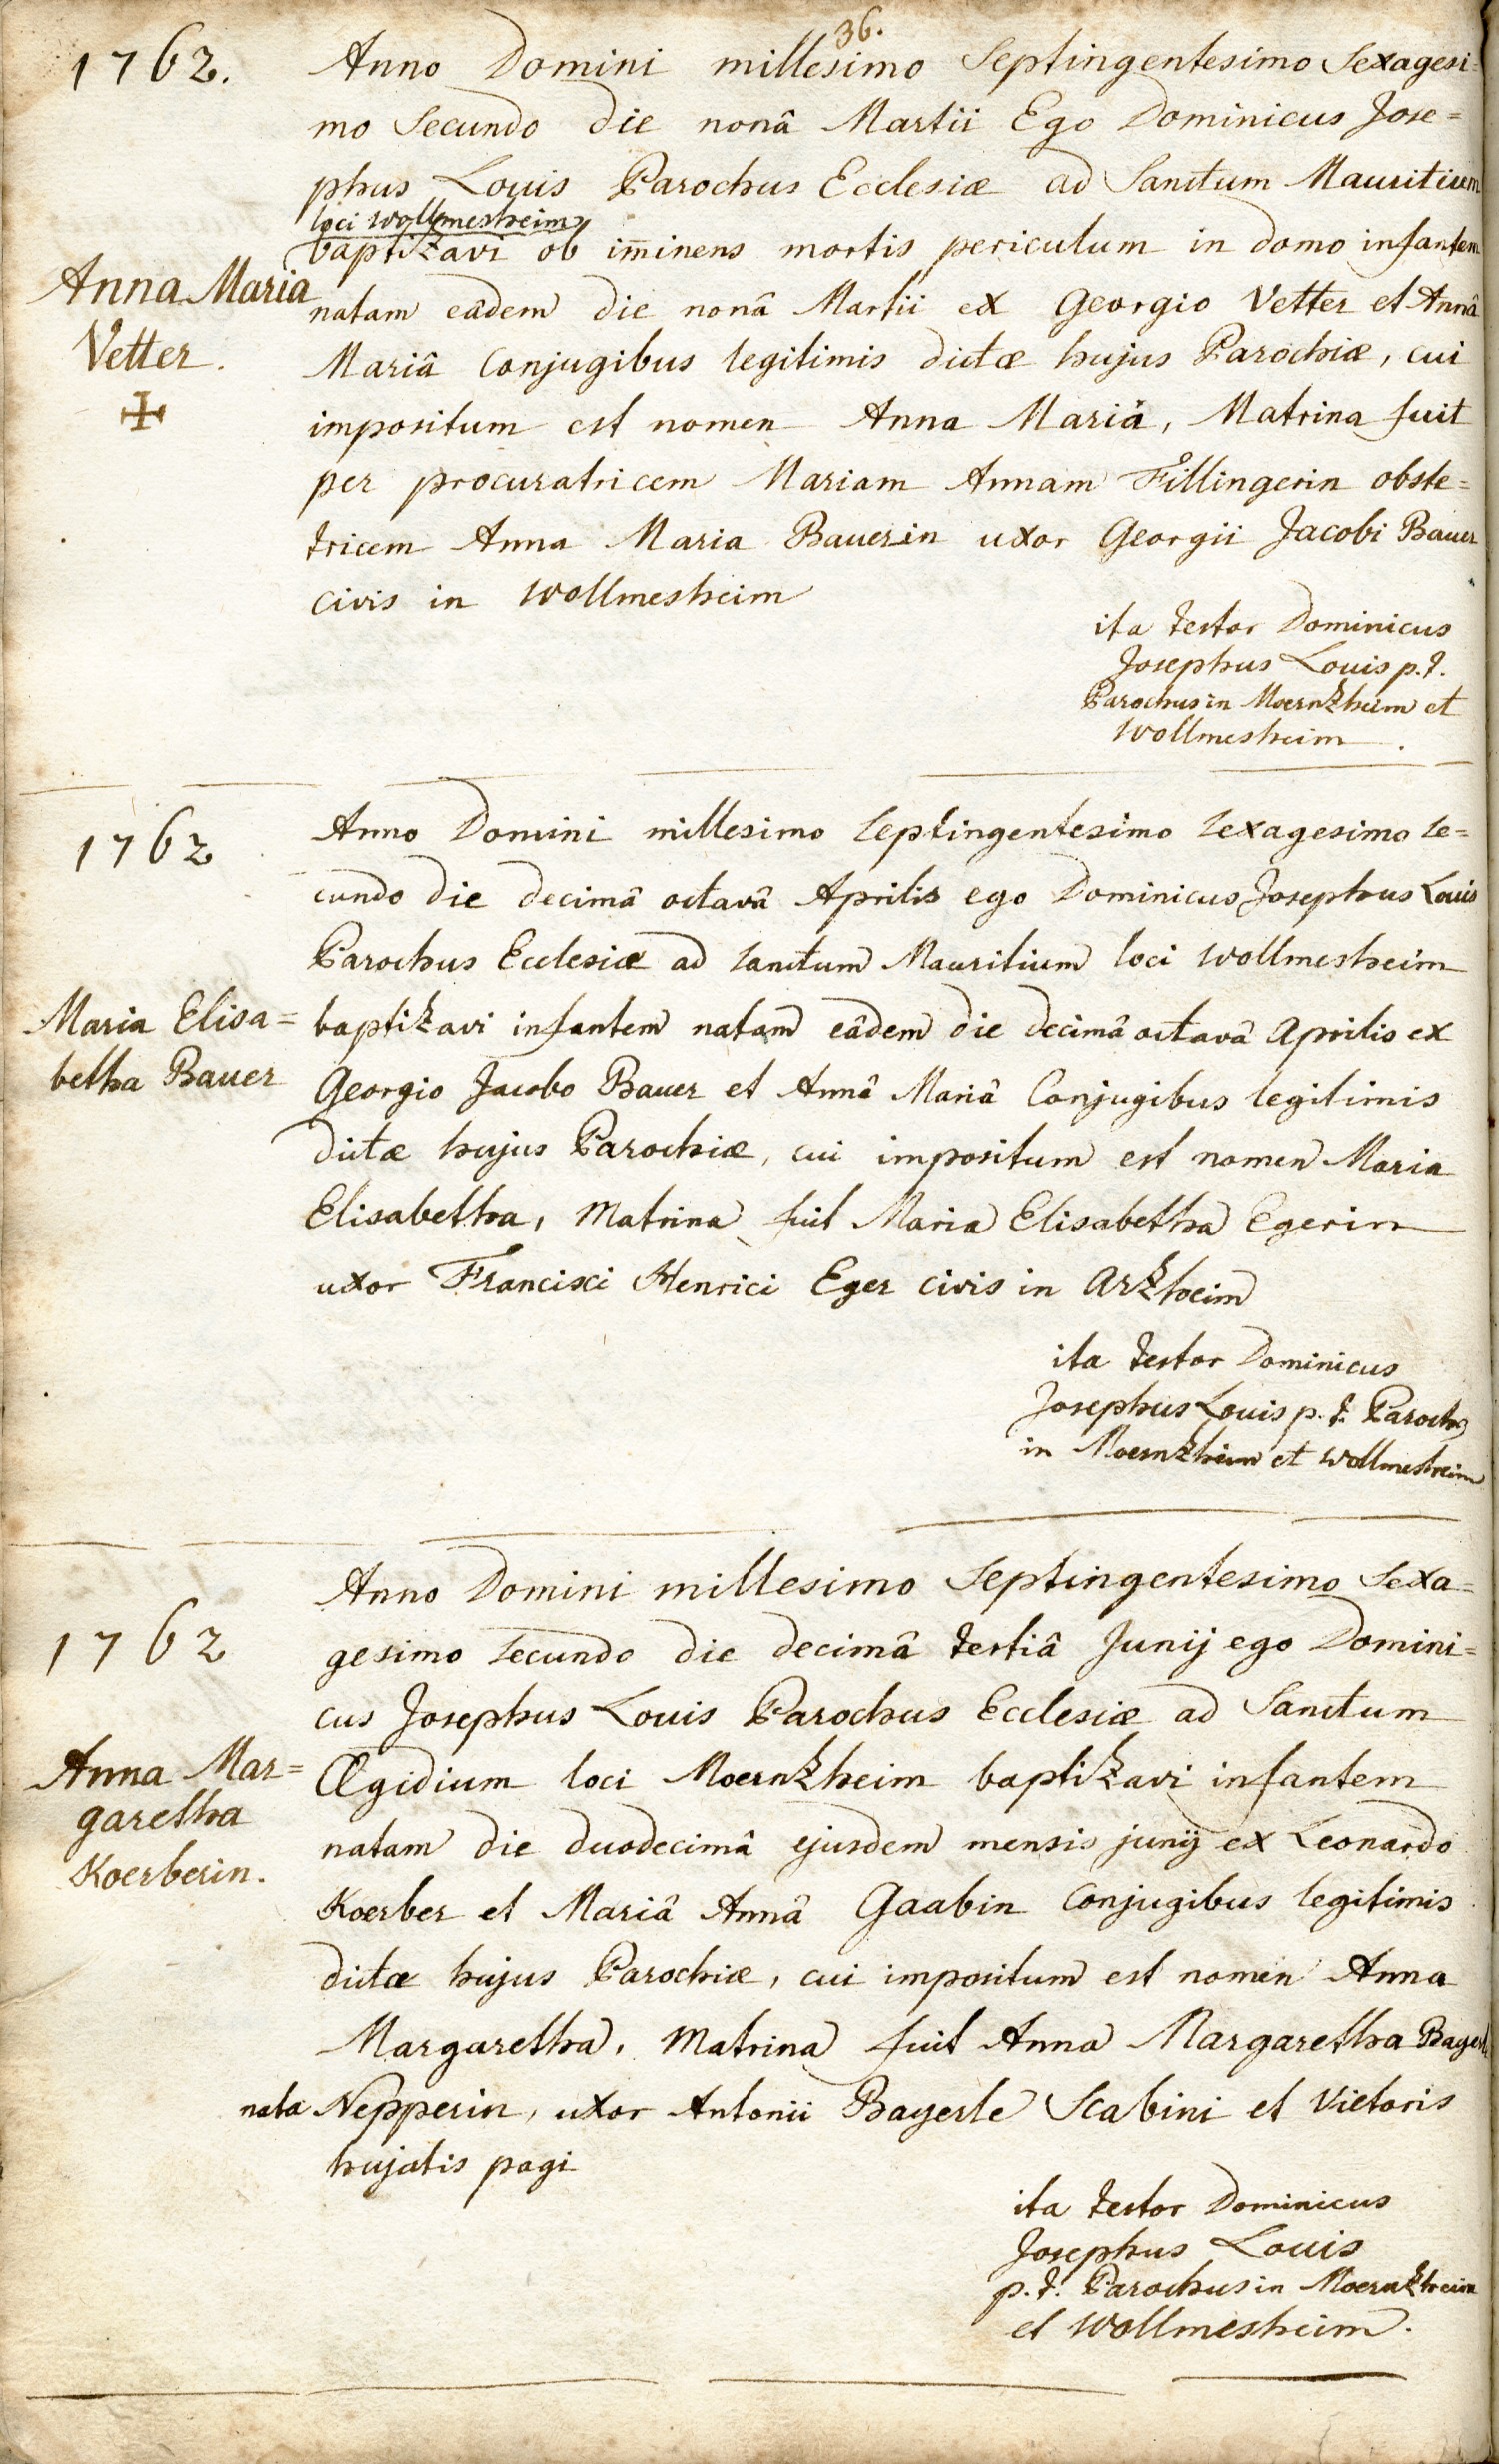 36.
1762. Anno Domini millesimo Septingentesimo Sexagesi=
mo Secundo die nonâ Martii Ego Dominicus Jose=
phus Louis Parochus Ecclesiæ ad Sanctum Mauritium
loci Wollmesheim
baptizavi ob im̄inens mortis periculum in domo infantem
Anna Maria
natam eâdem die nonâ Martii ex Georgio Vetter et Annâ
Vetter.
Mariâ Conjugibus legitimis dictæ hujus Parochiæ, cui
impositum est nomen Anna Maria, Matrina fuit
per procuratricem Mariam Annam Fillingerin obste=
tricem Anna Maria Bauerin uxor Georgii Jacobi Bauer
civis in Wollmesheim
ita testor Dominicus
Josephus Louis p.t.
Parochus in Moernzheim et
Wollmesheim.
1762 Anno Domini millesimo Septingentesimo Sexagesimo Se=
cundo die decimâ octavâ Aprilis ego Dominicus Josephus Louis
Parochus Ecclesiæ ad Sanctum Mauritium loci Wollmesheim
Maria Elisa= baptizavi infantem natam eâdem die decimâ octavâ Aprilis ex
betha Bauer Georgio Jacobo Bauer et Annâ Mariâ Conjugibus legitimis
dictæ hujus Parochiæ, cui impositum est nomen Maria
Elisabetha, Matrina fuit Maria Elisabetha Egerin
uxor Francisci Henrici Eger civis in Arzheim
ita testor Dominicus
Josephus Louis p.t. Parochus
in Moernzheim et Wollmesheim
1762 Anno Domini millesimo Septingentesimo Sexa=
gesimo Secundo die decimâ tertiâ Junij ego Domini=
cus Josephus Louis Parochus Ecclesiæ ad Sanctum
Anna Mar= Ægidium loci Moernzheim baptizavi infantem
garetha natam die duodecimâ ejusdem mensis junij ex Leonardo
Koerberin. Koerber et Mariâ Annâ Gaabin Conjugibus legitimis
dictæ hujus Parochiæ, cui impositum est nomen Anna
Margaretha, Matrina fuit Anna Margaretha
nata Nepperin, uxor Antonii Bayerle Scabini et Vietoris
hujatis pagi
ita testor Dominicus
Josephus Louis
p.t. Parochus in Moernzheim
et Wollmesheim.